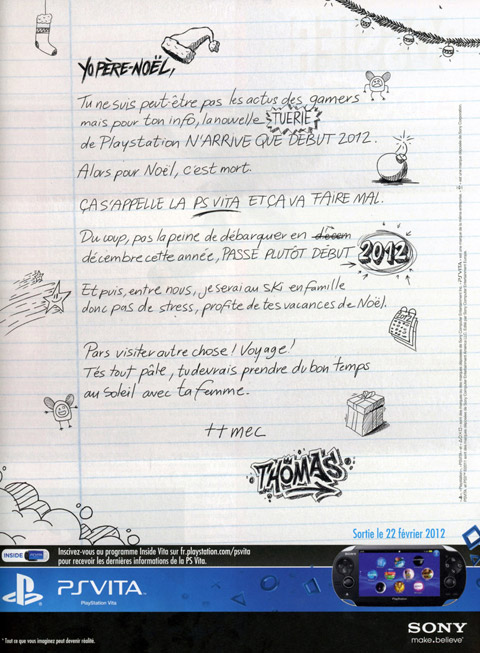 Yo PÈRE-NOËL,
Tu ne suis peut-être pas les actus des gamers
mais pour ton info, la nouvelle TUERIE
de Playstation N'ARRIVE QUE DÉBUT 2012.
Alors pour Noël, c'est mort.
ÇA S'APPELLE LA PS VITA ET ÇA VA FAIRE MAL.
Du coup, pas la peine de débarquer en décem
décembre cette année, PASSE PLUTÔT DÉBUT 2012
Et puis, entre nous, je serai au ski en famille
donc pas de stress, profite de tes vacances de Noël.
Pars visiter autre chose ! Voyage !
T'es tout pâle, tu devrais prendre du bon temps
au soleil avec ta femme.
++ mec
THOMAS
Sortie le 22 février 2012
INSIDE PSVITA
Inscrivez-vous au programme Inside Vita sur fr.playstation.com/psvita
pour recevoir les dernières informations de la PS Vita.
PSVITA
PlayStation Vita
SONY
make.believe*
* Tout ce que vous imaginez peut devenir réalité.